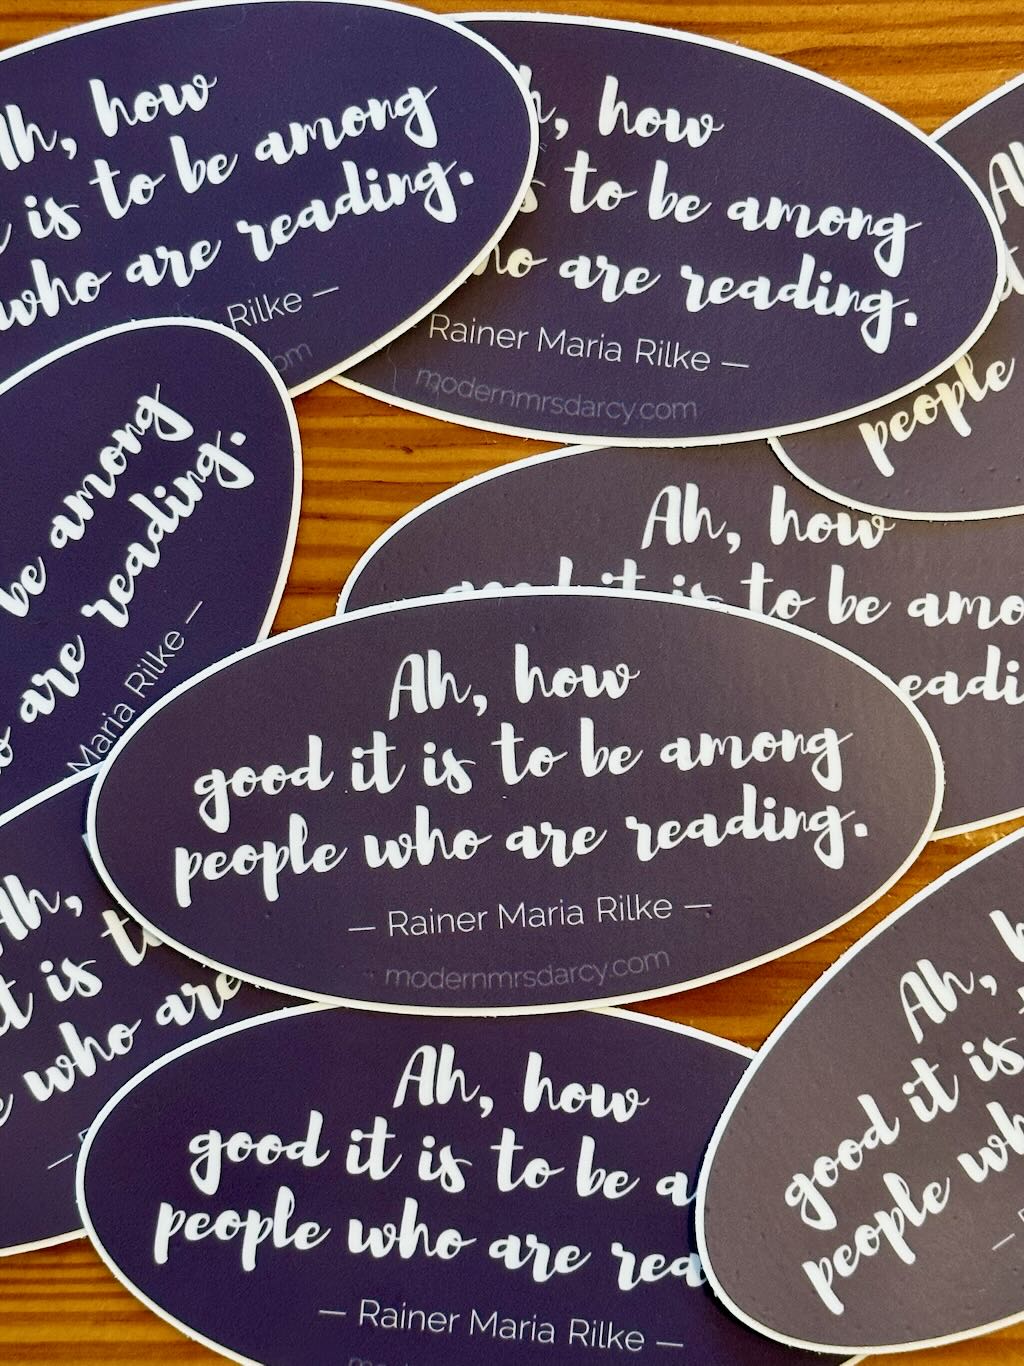 how
is to be among
who are reading.
Rilke —
how
to be among
are reading.
Rainer Maria Rilke —
modernmrsdarcy.com
people
be among
are reading.
Maria Rilke —
Ah, how
to be
Ah, how
good it is to be among
people who are reading.
— Rainer Maria Rilke —
modernmrsdarcy.com
Ah,
is
who are
Ah, how
good it is to be
people who are
— Rainer Maria Rilke —
Ah,
good it is
people